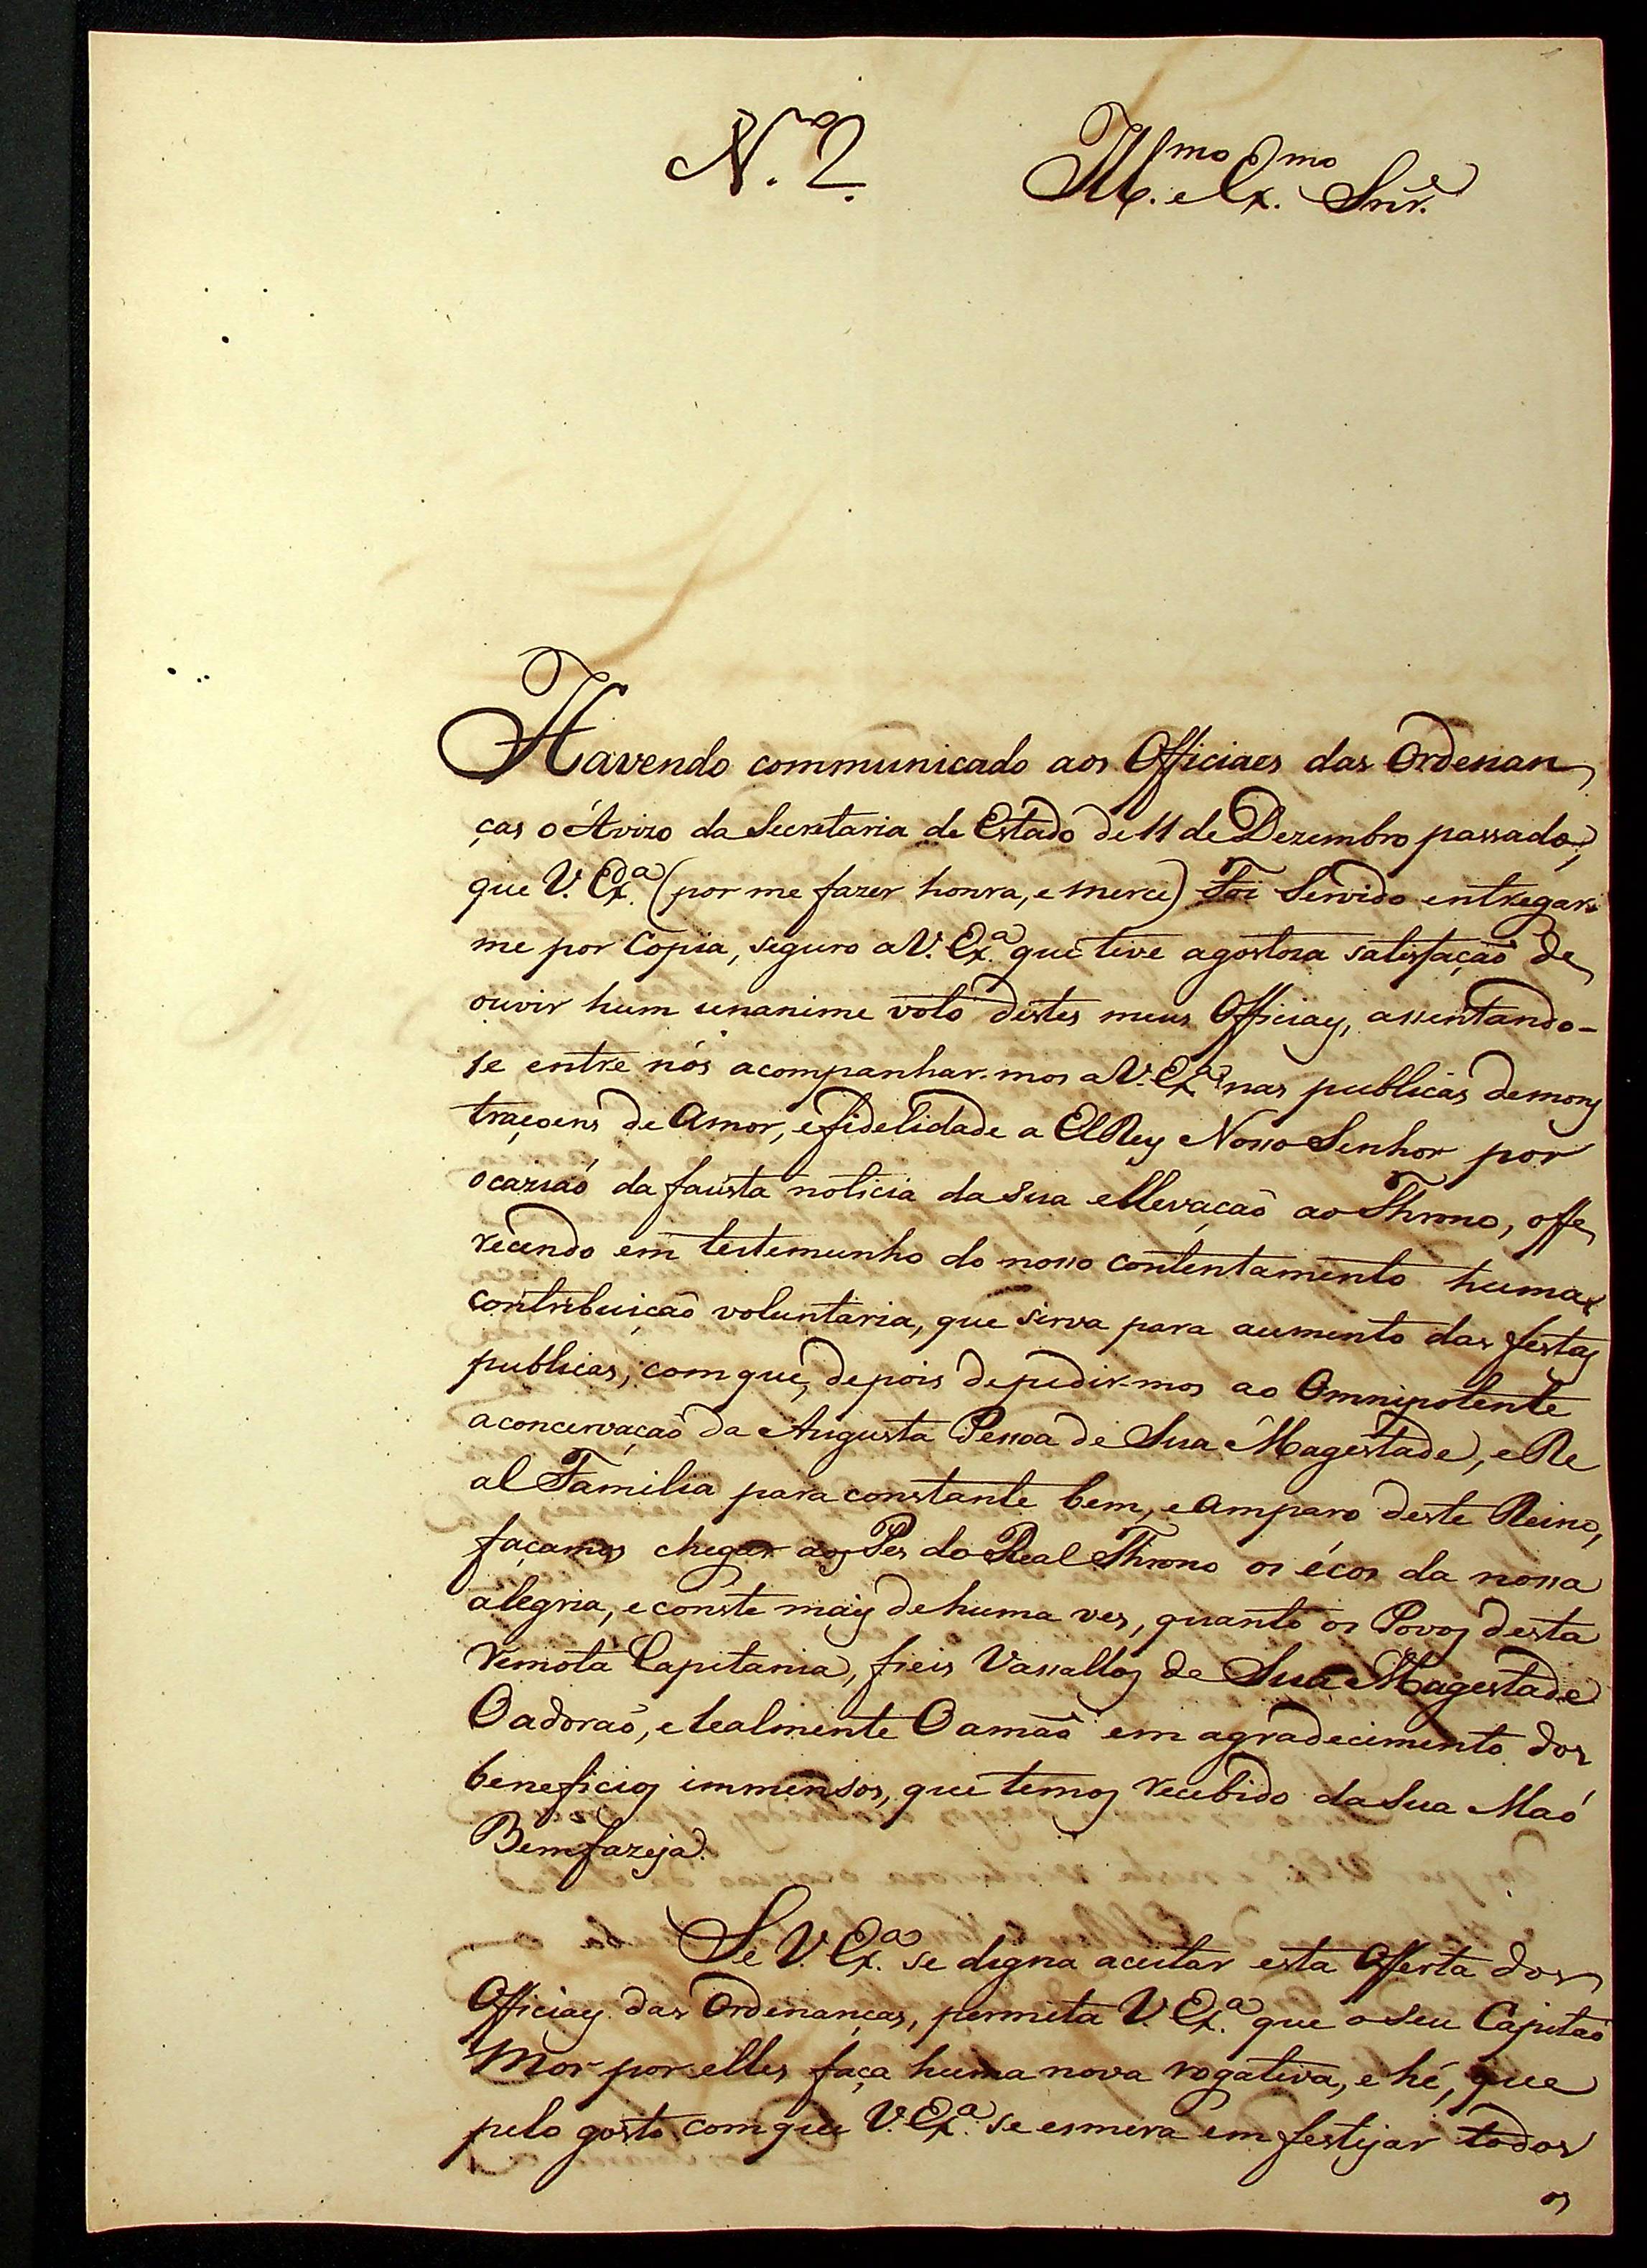 N.º 2.
Ill.mo e Ex.mo Snr.
Havendo communicado aos Officiaes das Ordenan
ças o Avizo da Secretaria de Estado de 11 de Dezembro passado,
que V. Ex.ª (por me fazer honra, e merce) Foi Servido entregar-
me por Copia, seguro a V. Ex.ª que tive a gostoza satisfação de
ouvir hum unanime voto destes meus Officiaes, assentando-
se entre nós acompanhar-mos a V. Ex.ª nas publicas demons
traçoens de Amor, e fidelidade a ElRey Nosso Senhor por
ocaziaõ da fausta noticia da Sua ellevaçaõ ao Throno, offe
recendo em testemunho do nosso contentamento huma
contribuiçaõ voluntaria, que sirva para aumento das festas
publicas, com que, depois de pedir-mos ao Omnipotente
a concervaçaõ da Augusta Pessoa de Sua Magestade, e Re
al Familia para constante bem, e amparo deste Reino,
façamos chegar aos Pes do Real Throno os écos da nossa
alegria, e conste mais de huma ves, quanto os Povos desta
remota Capitania, fieis Vassallos de Sua Magestade
O adoraõ, e lealmente O amaõ em agradecimento dos
beneficios immensos, que temos recebido da Sua Maõ
Bemfazeja.
Se V. Ex.ª se digna aceitar esta Offerta dos
Officiaes das Ordenanças, permita V. Ex.ª que o seu Capitaõ
Mor por elles faça huma nova rogativa, e hé, que
pelo gosto com que V. Ex.ª se esmera em festejar todos
os